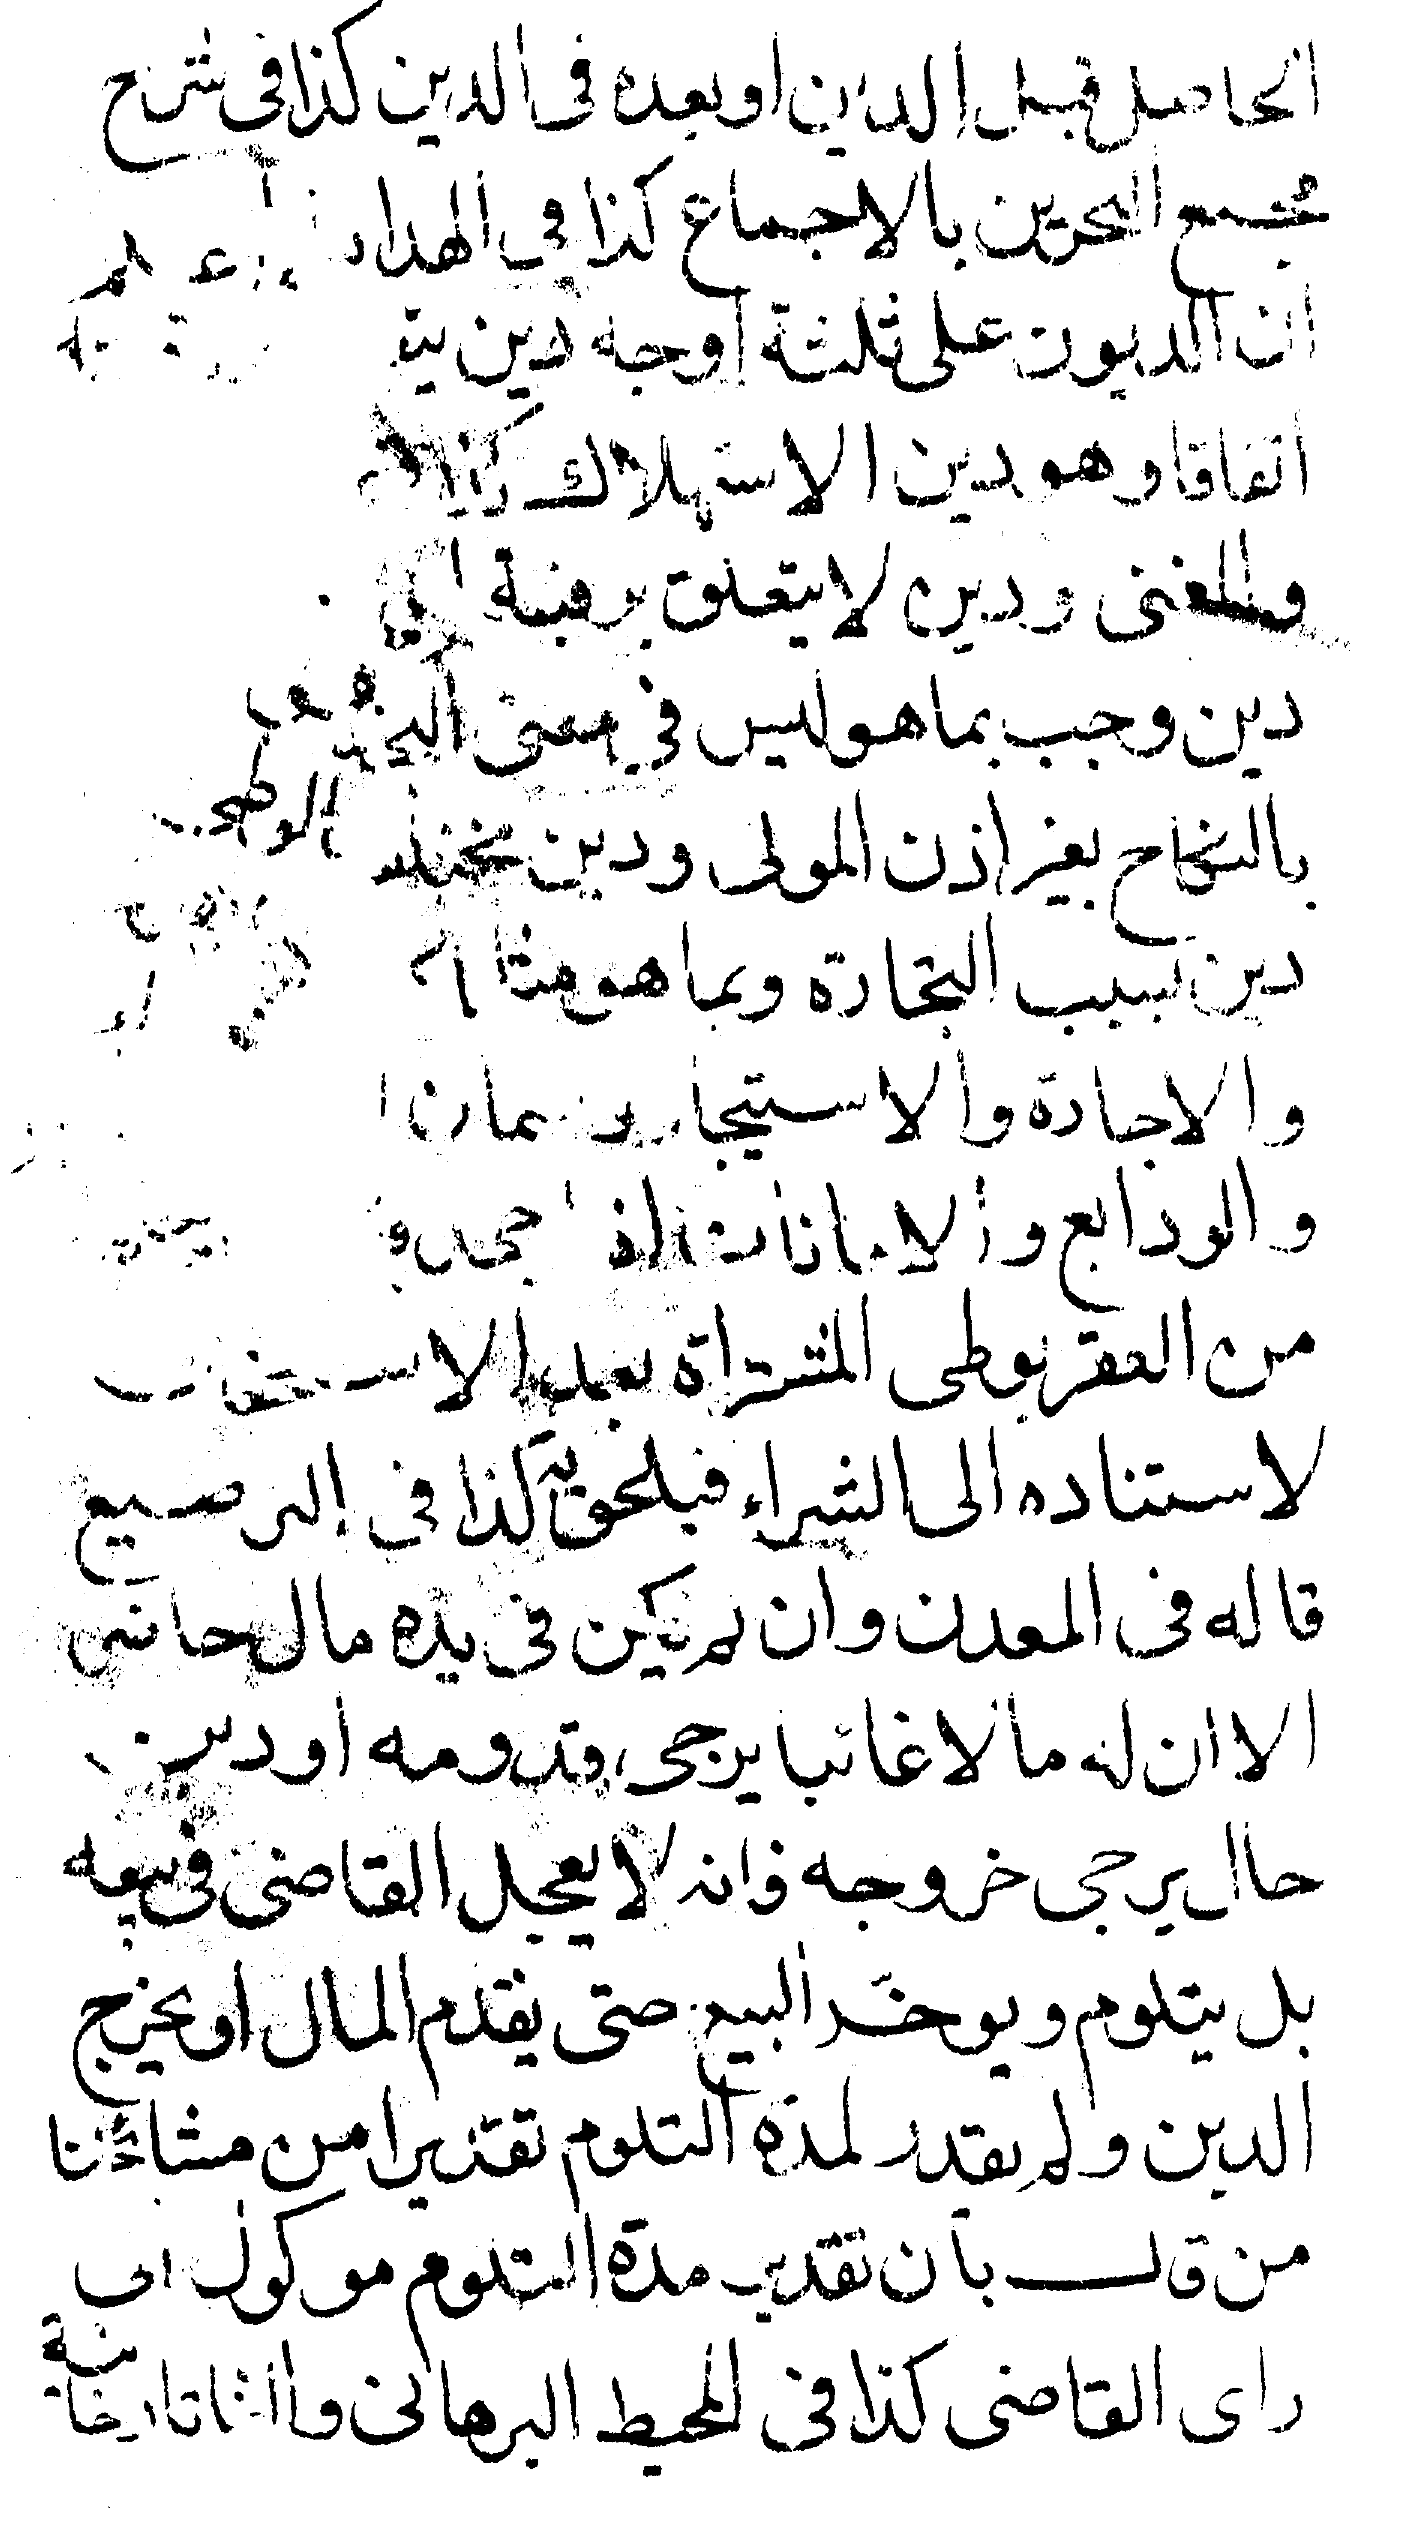 الحاصل قبل الدين او بعده فى الدين كذا فى شرح
مجمع البحرين بالاجماع كذا فى الهدا اعلم
ان الديون على ثلثة اوجه دين يتـ
اتفاقا وهو دين الاستهلاك كذا
والمغنى ودين لا يتعلق برقبته
دين وجب بما هو ليس في معنى التجـ الوطى
بالنكاح بغير اذن المولى ودين مختلف
دين بسبب التجارة وبما هو مثا
والاجارة والاستيجار
والودايع والامانات اذا جحدو
من العقر بوطى المشتراة بعد الاستحقاق
لاستناده الى الشراء فيلحق به كذا فى الترصيع
قاله فى المعدن وان لم يكن فى يده مال حاضر
الا ان له مالا غائبا يرجى قدومه او دين
حال يرجى خروجه فانه لا يعجل القاضى فى بيعه
بل يتلوم ويوخر البيع حتى يقدم المال او يخرج
الدين ولم يقدر لمدة التلوم تقديرا من مشائخنا
من قال بان تقدير مدة التلوم موكول الى
راى القاضى كذا فى المحيط البرهانى والتاتارخانية